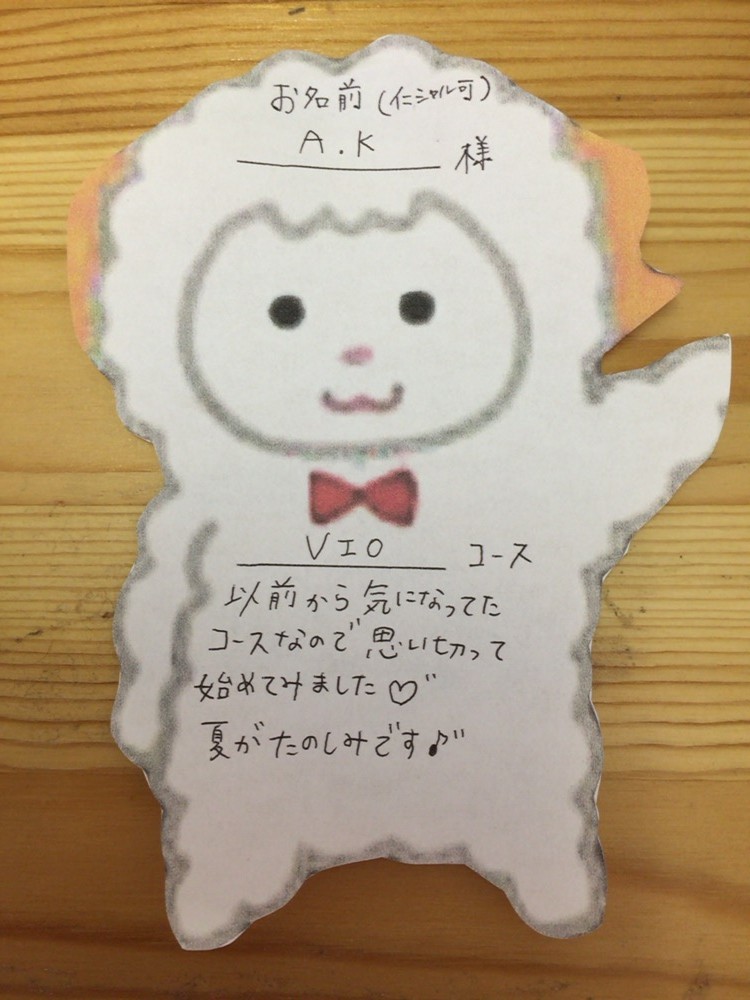 お名前(イニシャル可)
A.K 様
VIO コース
以前から気になってた
コースなので思い切って
始めてみました♡"
夏がたのしみです♪"